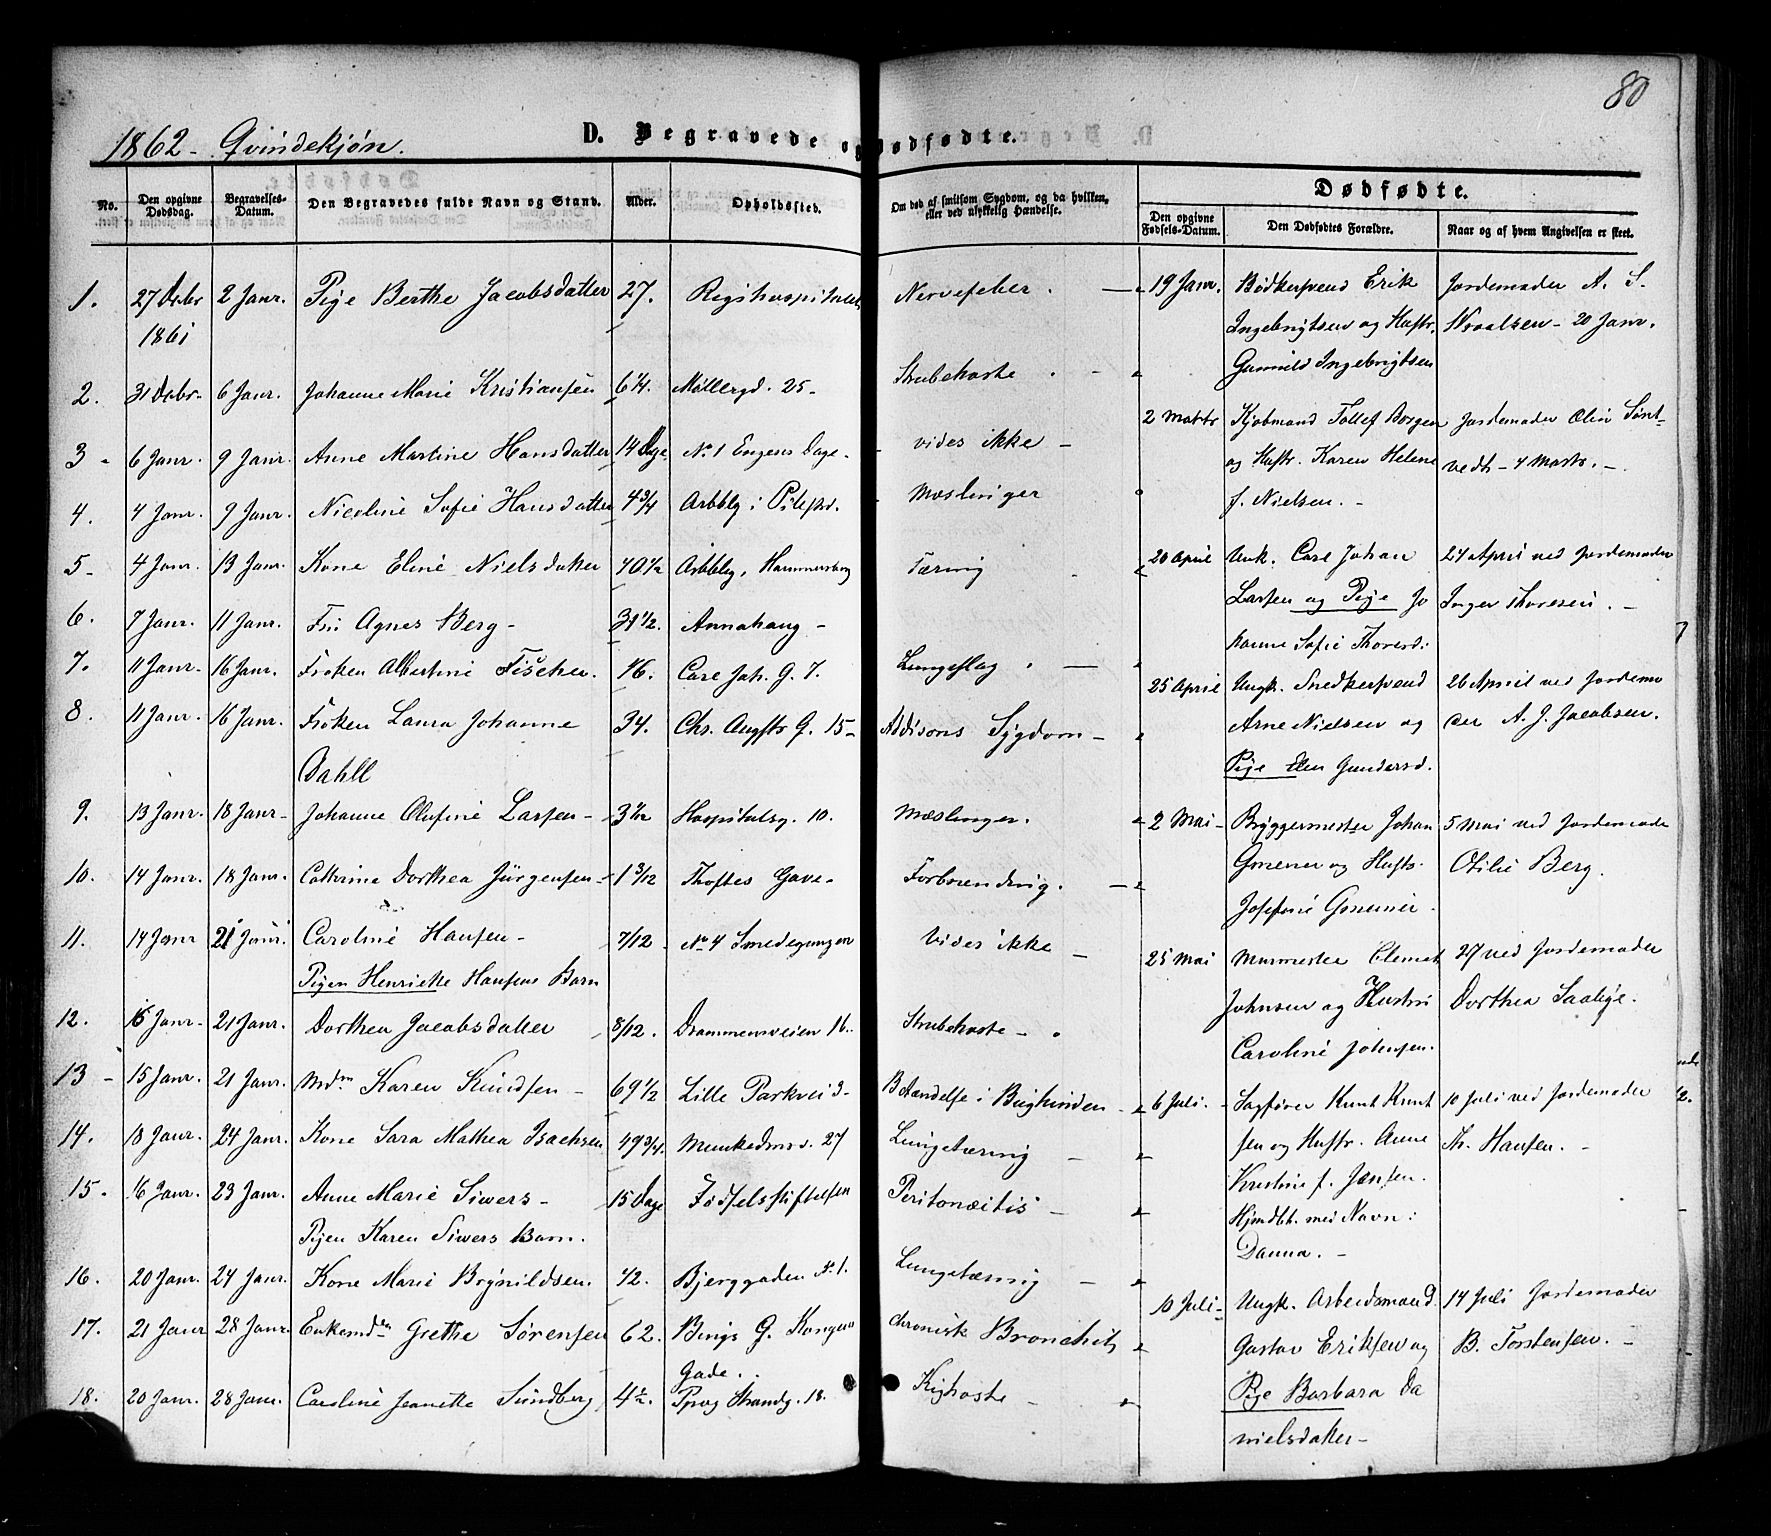 80
1862 - Qvindekjøn.
D. Begravede og Dødfødte.
No.
Den opgivne Dødsdag.
Begravelses-Datum.
Den Begravedes fulde Navn og Stand.
Alder.
Opholdssted.
Om død af smitsom Sygdom, og da hvilken, eller ved ulykkelig Hændelse.
Dødfødte.
Den opgivne Fødsels-Datum.
Den Dødfødtes Forældre.
Naar og af hvem Angivelsen er skeet.
1. 27 Decbr 2 Janr. Pige Berthe Jacobsdatter 27. Rigshospitalet Nervefeber.
1861
2. 31 Decbr 6 Janr. Johanne Marie Kristiansen 6 1/4. Møllergd. 25- Strubehoste
3 - 6 Janr. 9 Janr. Anne Martine Hansdatter 14 Dge. No 1 Engens Dage- vides ikke -
4. 4 Janr. 9 Janr. Nicoline Sofie Hansdatter 4 3/4 Arbblg i Pilestrd. Mæslinger
5- 4 Janr. 13 Janr. Kone Eline Nielsdatter 40 1/2 Arbblg, Hammersborg Tæring
6. 7 Janr. 11 Janr. Fru Agnes Berg - 31 1/2. Annahaug -
7. 11 Janr- 16 Janr. Frøken Albertine Fischer. 16. Carl Joh. G. 7. Lungeslag
8. 11 Janr. 16 Janr. Frøken Laura Johanne 34. Chr. Augsts G. 15- Addisons Sygdom -
Dahll
9. 13 Janr. 18 Janr- Johanne Olufine Larsen - 3 1/12 Hospitalsg. 10. Mæslinger.
10. 14 Janr. 18 Janr. Cathrine Dorthea Jürgensen - 1 3/12 Thoftes Gave- Forbrænding.
11. 14 Janr 21 Janr. Caroline Hansen - 7/12 - No 4 Smedegangen Vides ikke -
Pigen Henriette Hansens Barn
12. 15 Janr- 21 Janr. Dorthea Jacobsdatter 8/12. Drammensveien 16. Strubehoste -
13 - 15 Janr. 21 Janr. Mdm Karen Knudsen - 69 1/2 Lille Parkvei 3- Betændelse i Bughinden -
14. 18 Janr. 24 Janr. Kone Sara Mathea Isachsen 49 3/4. Munkedmsv. 27 Lungetæring -
15. 16 Janr. 23 Janr. Anne Marie Siwers - 15 Dage Fødselsstiftelsen Peritonæitis -
Pigen Karen Siwers Barn.
16. 20 Janr. 24 Janr. Kone Marie Brynildsen. 42. Bjerggaden No 1. Lungetæring -
17. 21 Janr 28 Janr. Enkemdm Grethe Sørensen 62. Bings G. Kongens chronisk Bronchit
Gade.
18. 20 Janr. 28 Janr. Caroline Jeanette Sundberg 4 1/2. Pprvg Strandg. 18. Kighoste -
19 Janr. Bødkersvend Erik Jordemoder A. S.
Ingebrigtsen og Hustr. Wraalsen - 20 Janr.
Gunnild Ingebrigtsen
2 Marts Kjøbmand Tollef Borgen Jordemoder Elin Sønt-
og Hustr. Karen Helene vedt - 4 Marts. -
f. Nielsen. -
20 April Unk. Carl Johan 24 April ved Jordemoder
Larsen og Pige Jo Inger Thoresen. -
hanne Sofie Thoresd:
25 April Ungk. Snedkersvend 26 April ved Jordemo
Arne Nielsen og der A. J. Jacobsen.
Pige Elen Gundersd.
2 Mai - Bryggermester Johan 5 Mai ved Jordemoder
Gmeiner og Hustr. Otilie Berg.
Josefine Gmeiner.
25 Mai Murmester Clemet 27 ved Jordemoder
Johnsen og Hustru Dorthea Saalige.
Caroline Johnsen.
6 Juli. - Sagfører Knut Knut 10 Juli ved Jordemoder
sen og Hustr. Anne Th. Hansen. -
Kirstine f. Jensen.
Hjmdbt. med Navn:
Danna. -
10 Juli - Ungk. Arbeidsmand 14 Juli Jordemoder
Gustav Eriksen og B. Torstensen. -
Pige Barbara Da
nielsdatter -